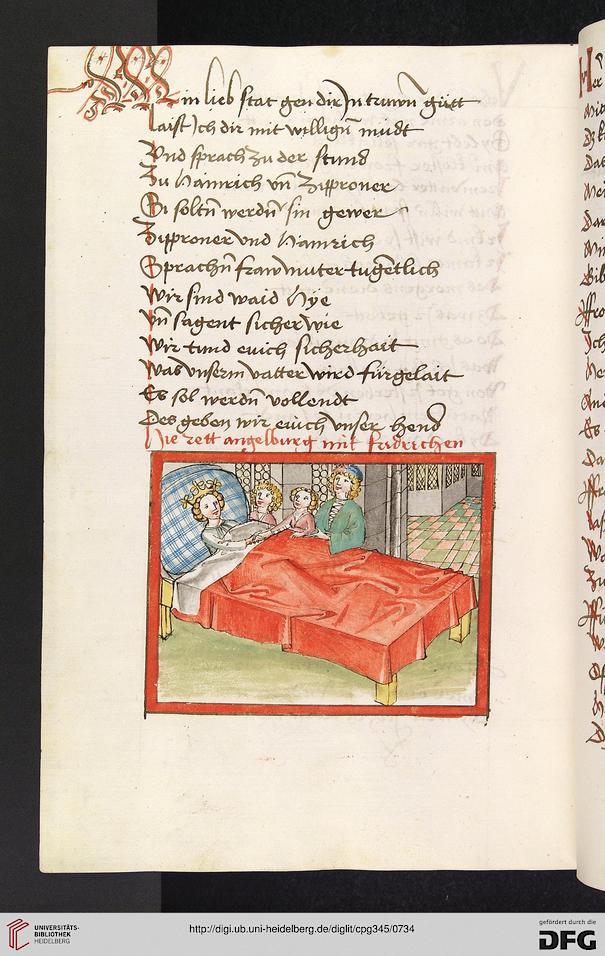 Mein lieb stat gen dir Jn truwñ gůtt
Laist Jch dir mit willigñ můdt
Vnd sprach zu der stund
Zu Hainrich vñ Zipproner
Si soltñ werdñ sin gewer
Zipproner vnd Hainrich
Sprachñ fraw můter tugẽtlich
Wir sind waid Hye
Vñ sagent sicher wie
Wir tund euich sicherhait
Was vnserm vatter wird fürgelait
Es sol werdñ vollendt
Des geben wir euich vnser hend
Hie rett angelburg mit fridrichen
UNIVERSITÄTS-
BIBLIOTHEK
HEIDELBERG
http://digi.ub.uni-heidelberg.de/diglit/cpg345/0734
gefördert durch die
DFG